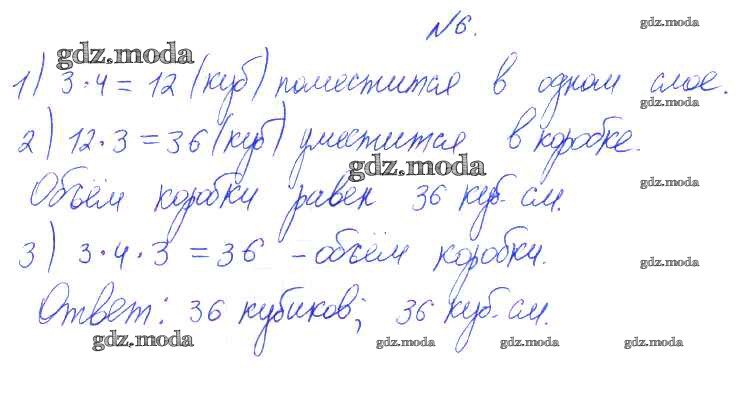 №6.
gdz.moda
gdz.moda
1) 3·4=12 (куб) поместится в одном слое.
gdz.moda
2) 12·3=36 (куб) уместится в коробке.
gdz.moda
gdz.moda
Объём коробки равен 36 куб.см.
3) 3·4·3=36 - объём коробки.
gdz.moda
Ответ: 36 кубиков; 36 куб.см.
gdz.moda gdz.moda gdz.moda gdz.moda